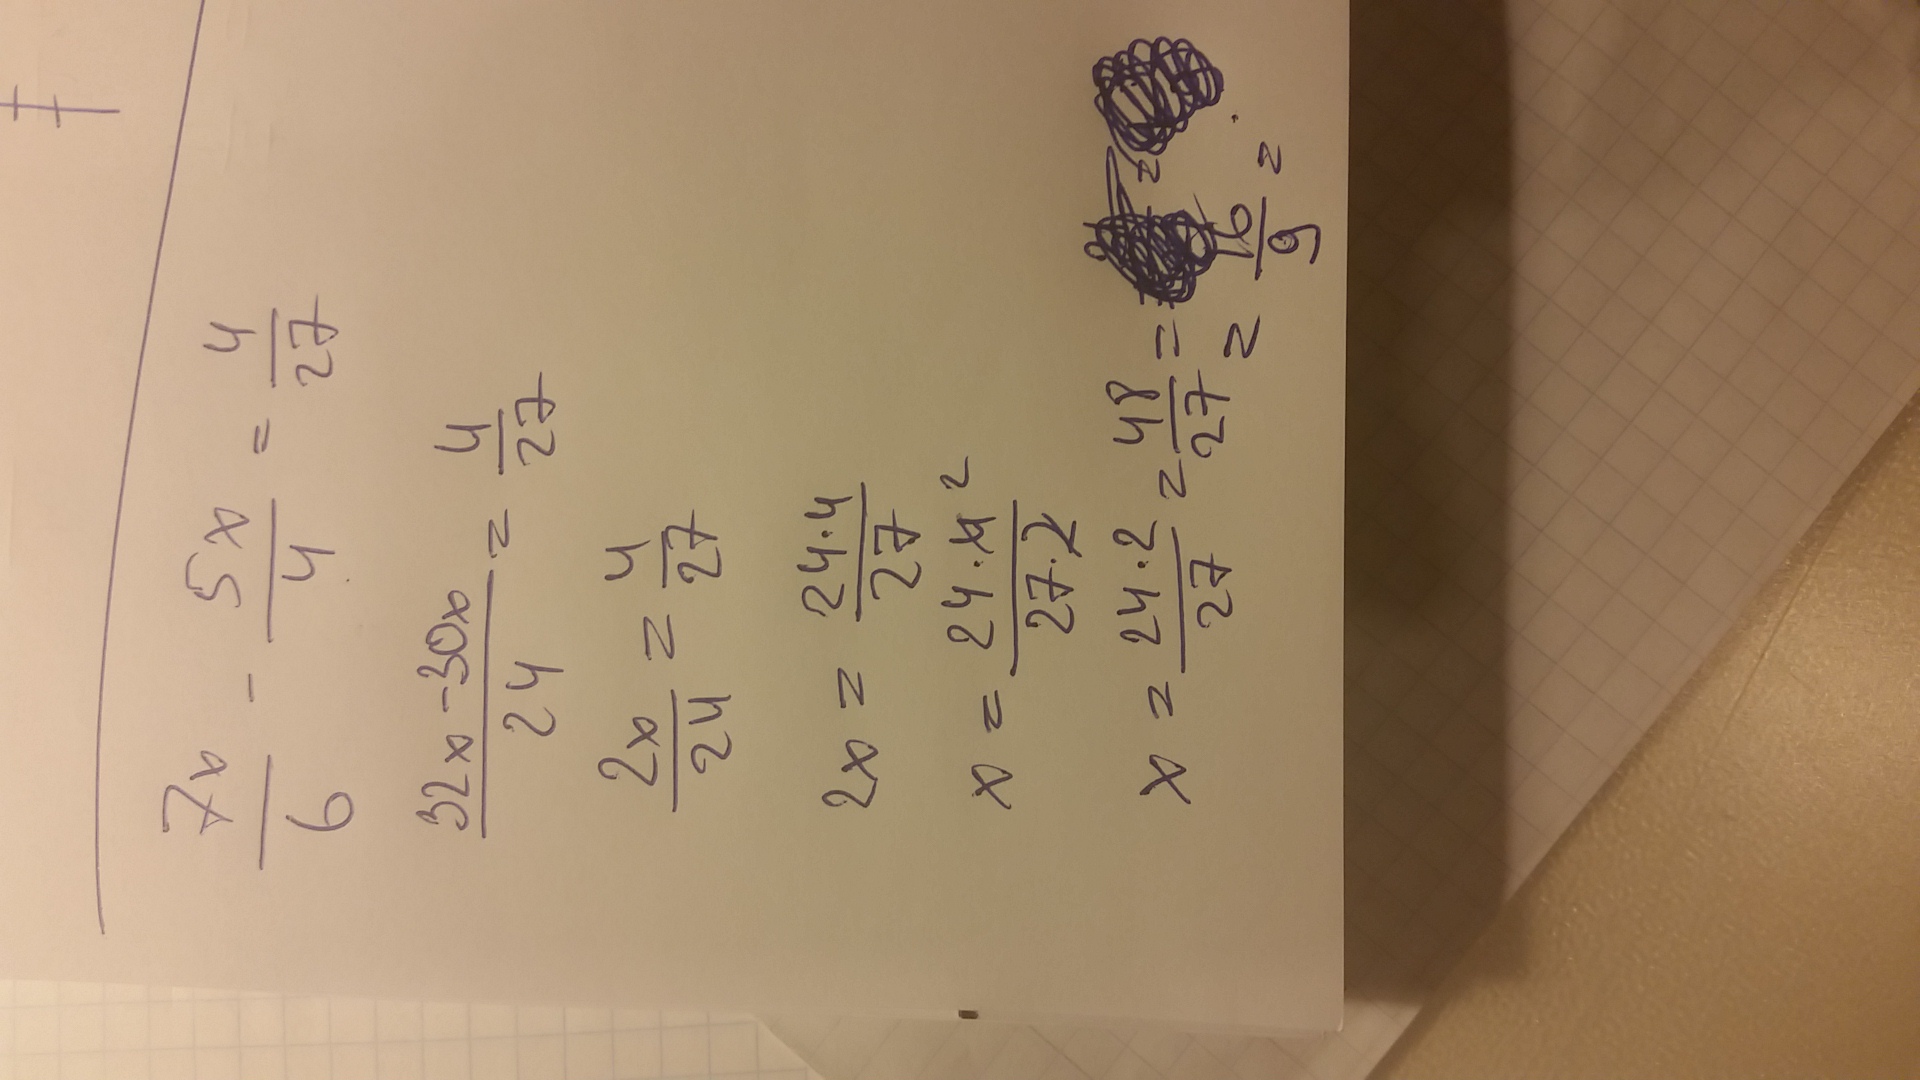 7x/6 - 5x/4 = 4/27
32x-30x/24 = 4/27
2x/24 = 4/27
2x = 24·4/27
x = 24·4 2/27·2
x = 24·2/27 = 48/27 =
= 16/9 =